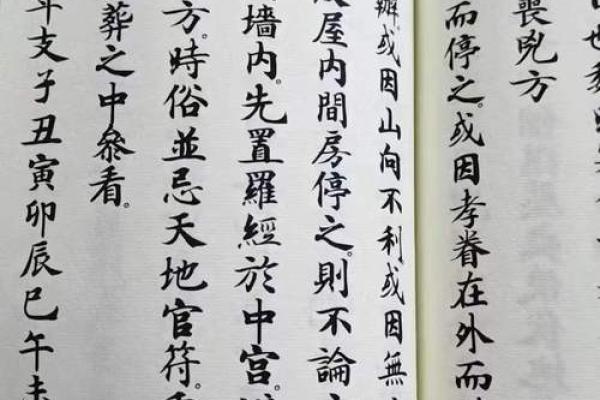 也
喪兇方
而停之。或因孝眷在外而
辦或因山向不利或因無
屋内間房停之。則不論
墻内。先置羅經於中宫。
方。時俗並忌天地官符。
葬之中叅看。
年支子丑寅卯辰巳午未